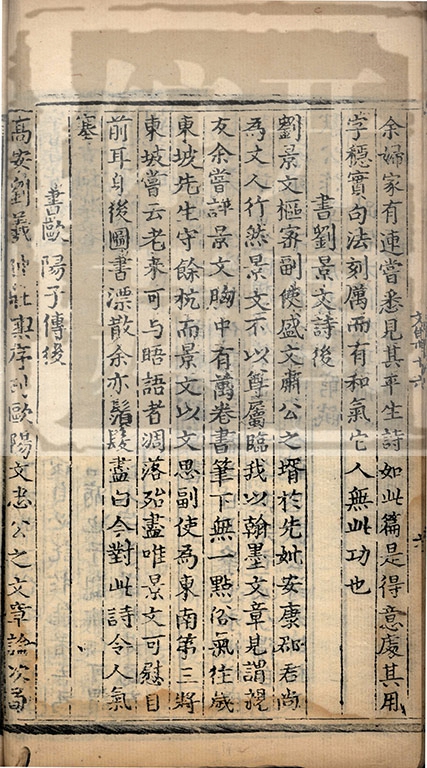 余婦家有連嘗悉見其平生詩如此篇是得意處其用
字穩實句法刻厲而有和氣它人無此功也
書劉景文詩後
劉景文樞密副使盛文肅公之壻於先妣安康郡君尚
為文人行然景文不以尊屬臨我以翰墨文章見謂親
友余嘗評景文胸中有萬卷書筆下無一點俗氣往歲
東坡先生守餘杭而景文以文思副使為東南第三將
東坡嘗云老来可与晤語者凋落殆盡唯景文可慰目
前耳身後圖書漂散余亦鬚髮盡白今對此詩令人氣
塞
書歐陽子傳後
高安劉羲仲壯輿序列歐陽文忠公之文章論次荀